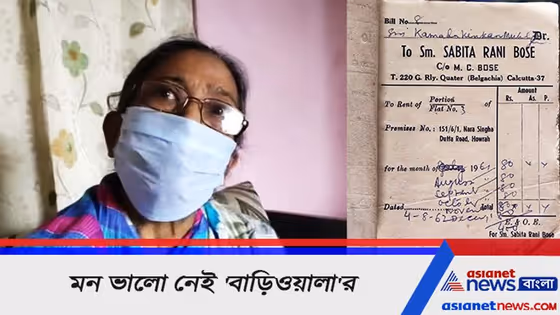 Bill No 8
Sri Kamada Kinkar Dr.
To Sm. SABITA RANI BOSE
C/o M. C. BOSE
T. 220 G. Rly. Quater (Belgachia) Calcutta-37
Amount
Rs. As. P.
To Rent of Portion of
Flat No. 3
Premises No. : 151/6/1, Nara Singha
Dutta Road, Howrah
for the month of 196 80
August 80
Octo
Dated Total
4-8-62
E. & O. E.
For Sm. Sabita Rani Bose
মন ভালো নেই 'বাড়িওয়ালা'র
asianet
news বাংলা
asianetnews.com